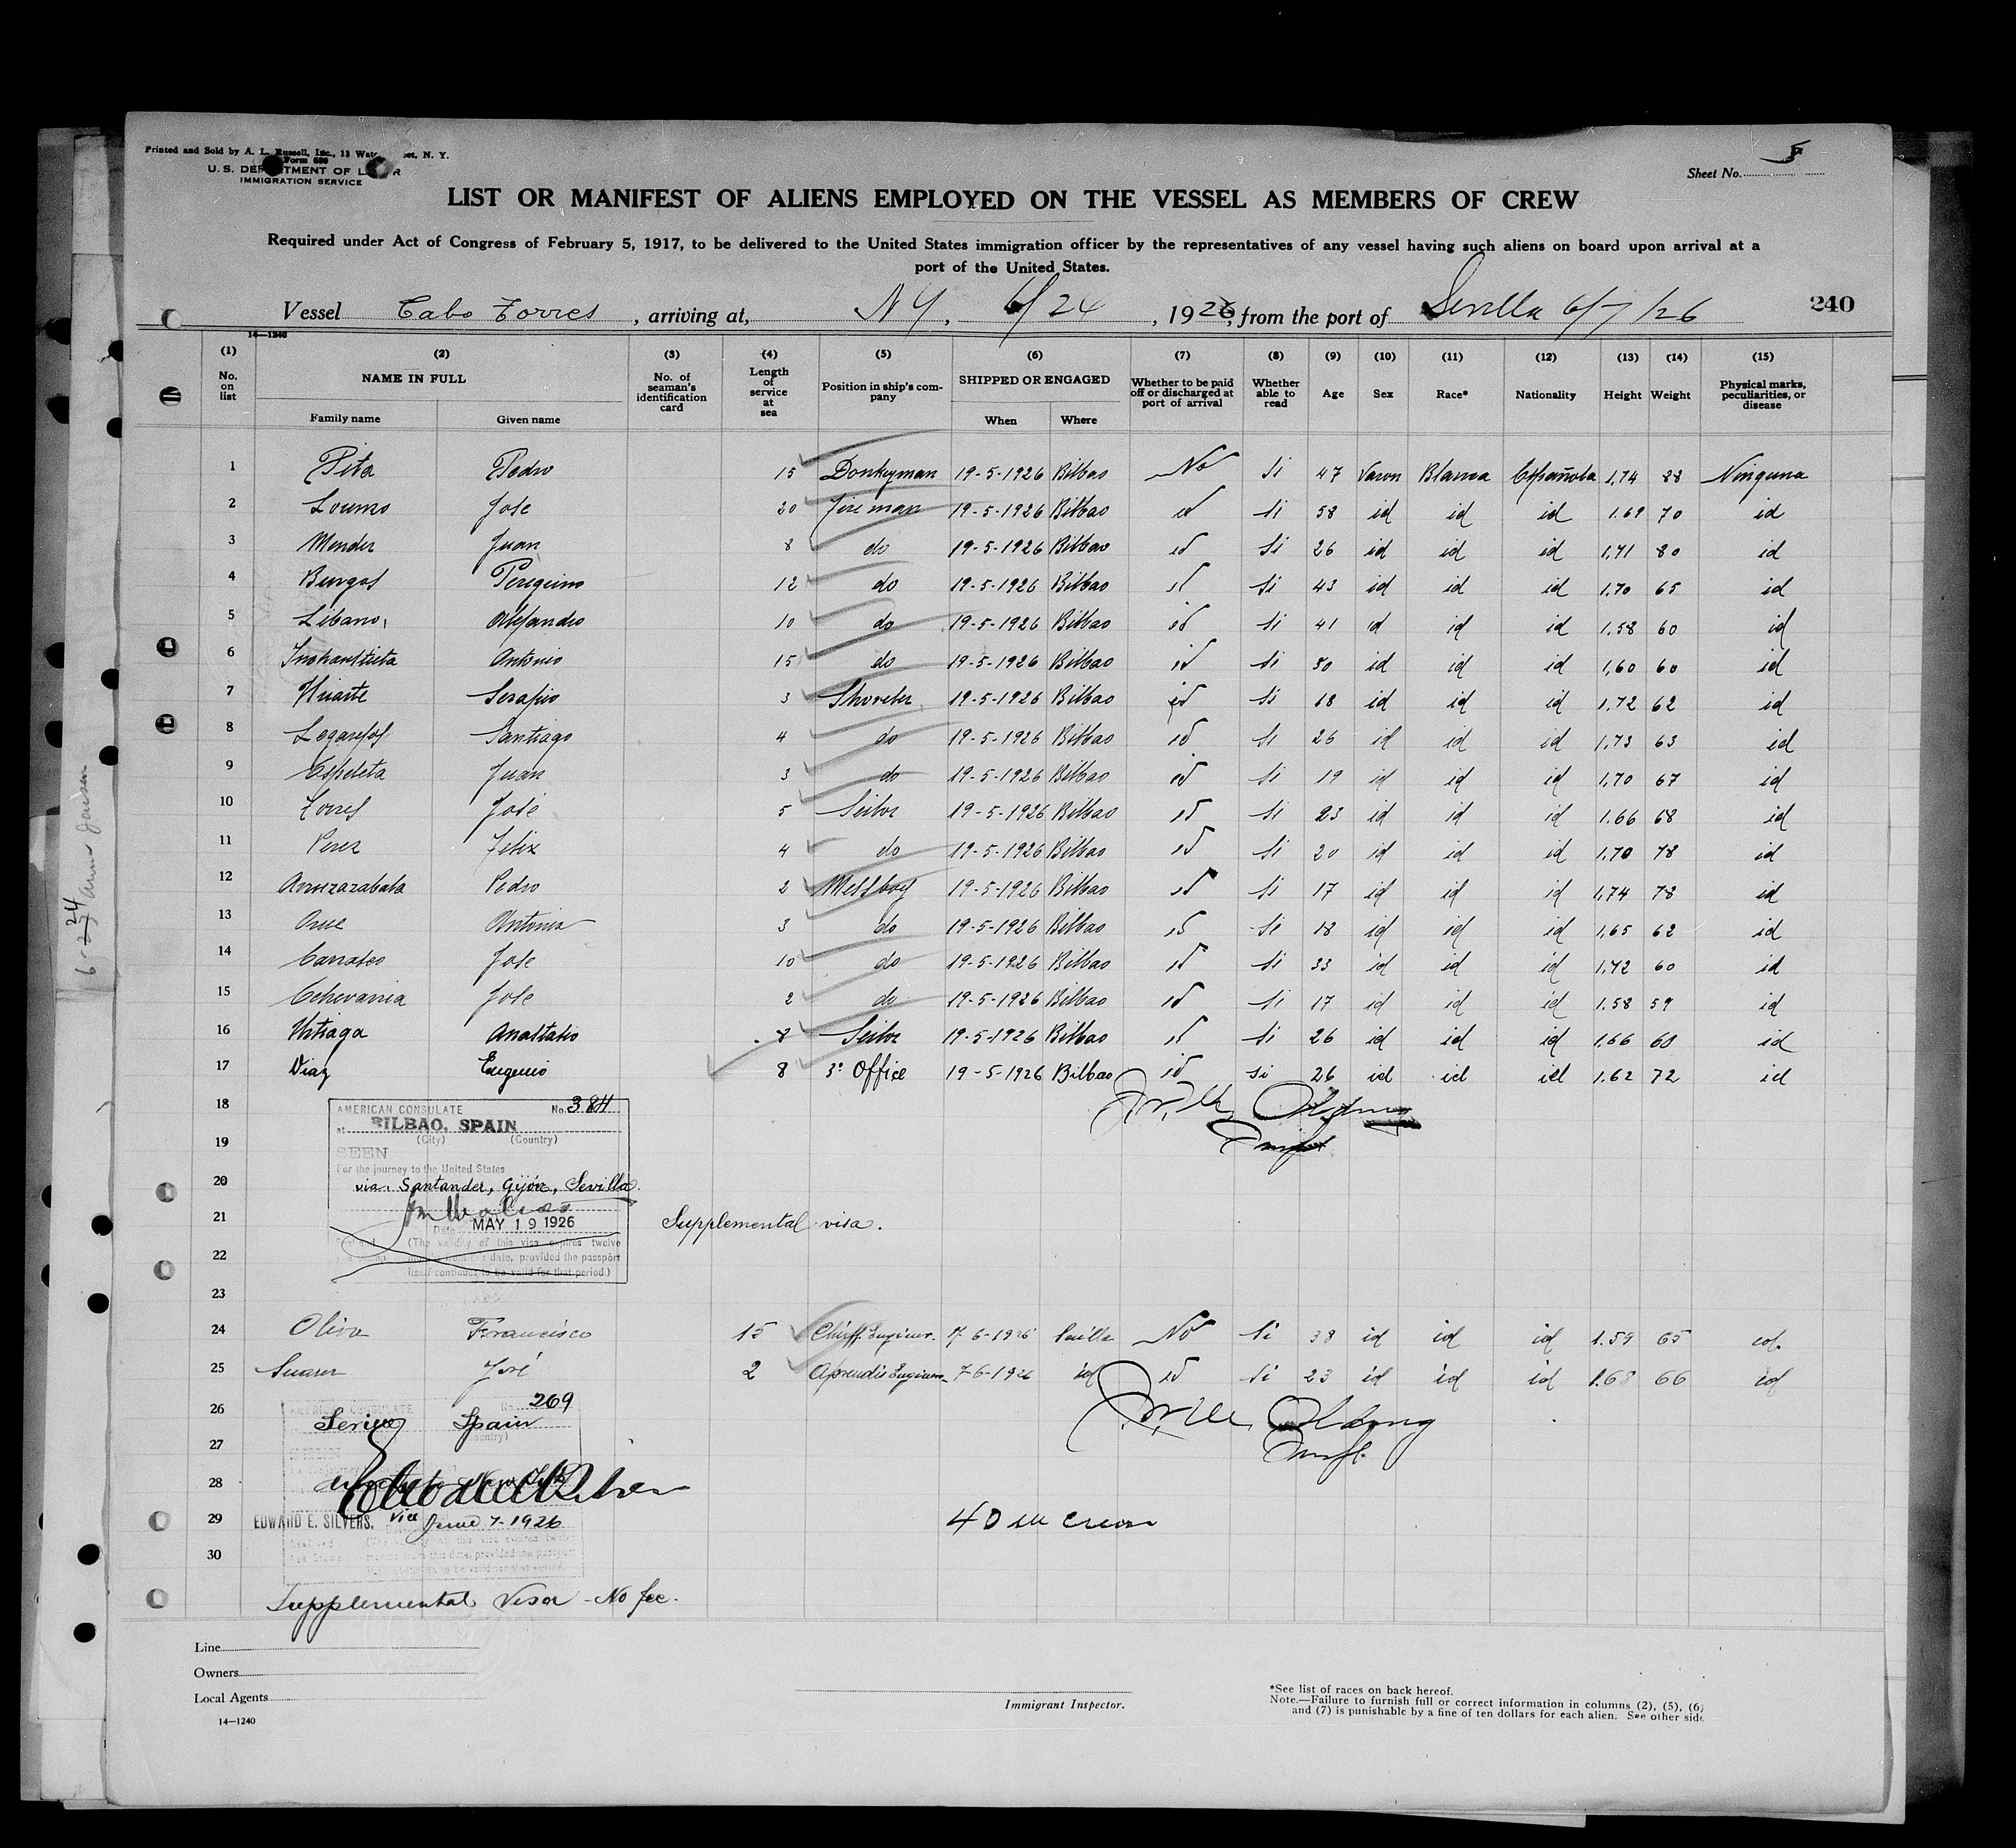 Printed and Sold by A. L. Russell, Inc., 13 Wat et, N. Y.
Form 680
U. S. DEPARTMENT OF LABOR
IMMIGRATION SERVICE
Sheet No.
LIST OR MANIFEST OF ALIENS EMPLOYED ON THE VESSEL AS MEMBERS OF CREW
Required under Act of Congress of February 5, 1917, to be delivered to the United States immigration officer by the representatives of any vessel having such aliens on board upon arrival at a
port of the United States.
Vessel Cabo Torres, arriving at, NY, 6/24, 1926, from the port of Sevilla 6/7/26 240
14—1240
(1) (2) (3) (4) (5) (6) (7) (8) (9) (10) (11) (12) (13) (14) (15)
No. on list NAME IN FULL No. of seaman's identification card Length of service at sea Position in ship's company SHIPPED OR ENGAGED Whether to be paid off or discharged at port of arrival Whether able to read Age Sex Race* Nationality Height Weight Physical marks, peculiarities, or disease
Family name Given name When Where
1 Pita Pedro 15 Donkeyman 19-5-1926 Bilbao No Si 47 Varon Blanca Española 1,74 88 Ninguna
2 Jose 20 Fireman 19-5-1926 Bilbao id Si 58 id id id 1.69 70 id
3 Mendez Juan 8 do 19-5-1926 Bilbao id Si 26 id id id 1,71 80 id
4 Burgos 12 do 19-5-1926 Bilbao id Si 43 id id id 1,70 65 id
5 Libano Alejandro 10 do 19-5-1926 Bilbao id Si 41 id id id 1,58 60 id
6 Antonio 15 do 19-5-1926 Bilbao id Si 50 id id id 1,60 60 id
7 Uriarte Serapio 3 19-5-1926 Bilbao id Si 18 id id id 1,72 62 id
8 Santiago 4 do 19-5-1926 Bilbao id Si 26 id id id 1,73 63 id
9 Espeleta Juan 3 do 19-5-1926 Bilbao id Si 19 id id id 1,70 67 id
10 Torres José 5 Seilor 19-5-1926 Bilbao id Si 23 id id id 1.66 68 id
11 Perez Felix 4 do 19-5-1926 Bilbao id Si 20 id id id 1,70 78 id
12 Pedro 2 Messboy 19-5-1926 Bilbao id Si 17 id id id 1,74 78 id
13 Arue Antonio 3 do 19-5-1926 Bilbao id Si 18 id id id 1,65 62 id
14 Jose 10 do 19-5-1926 Bilbao id Si 33 id id id 1,72 60 id
15 Echevarria Jose 2 do 19-5-1926 Bilbao id Si 17 id id id 1.58 59 id
16 Urtiaga Anastasio 8 Seilor 19-5-1926 Bilbao id Si 26 id id id 1,66 60 id
17 Diaz Eugenio 8 3º Office 19-5-1926 Bilbao id Si 26 id id id 1.62 72 id
18
AMERICAN CONSULATE No. 384
at BILBAO, SPAIN
(City) (Country)
19
SEEN
For the journey to the United States
20
via. Santander, Gijón, Sevilla.
21
Date MAY 19 1926
Supplemental visa.
(The validity of this visa expires twelve
22
months from this date, provided the passport
itself continues to be valid for that period.)
23
24 Oliva Francisco 15 Chieff. Enginer. 7-6-1926 Sevilla No Si 38 id id id 1.59 65 id.
25 Suarez José 2 Aprendis Enginer 7-6-1926 id id Si 23 id id id 1.68 66 id
26
AMERICAN CONSULATE No. 269
Seville Spain
(Country)
27
28
29
EDWARD E. SILVERS, Vice June 7-1926
40 in crew
30
Supplemental Visa - No fee.
Line
Owners
Local Agents
14—1240
Immigrant Inspector.
*See list of races on back hereof.
Note.—Failure to furnish full or correct information in columns (2), (5), (6)
and (7) is punishable by a fine of ten dollars for each alien. See other side